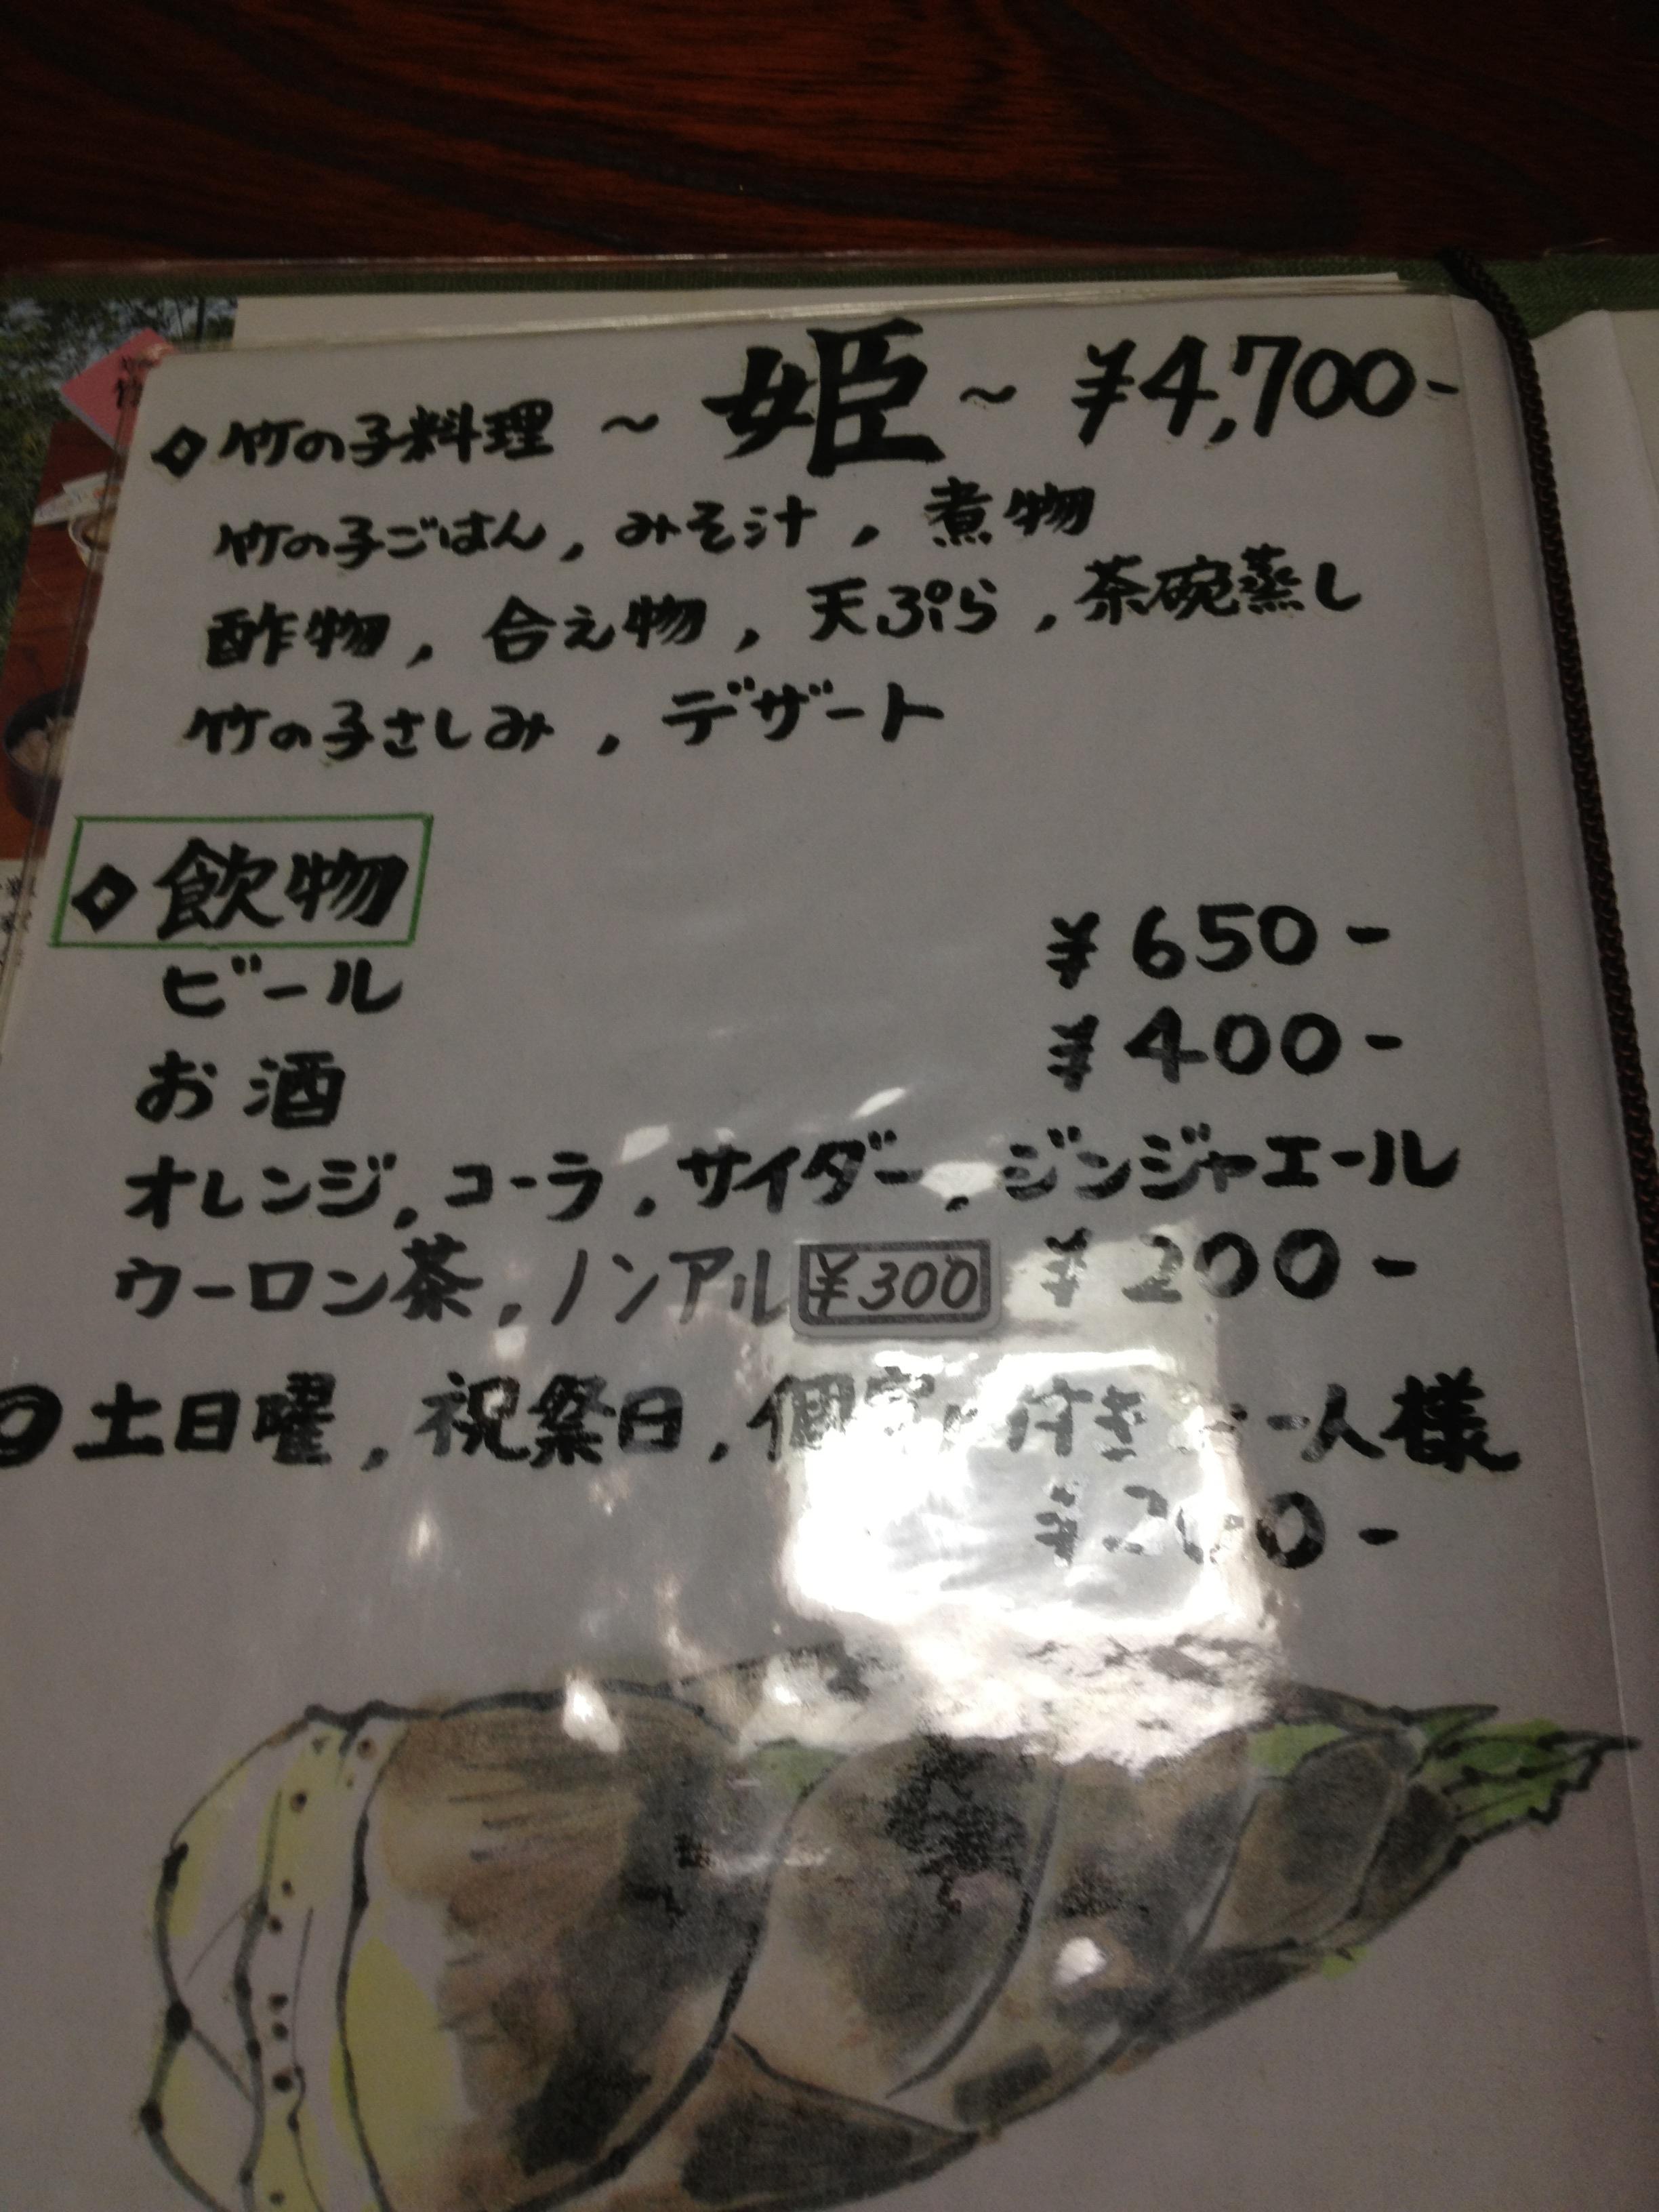 ◇竹の子料理 ～姫～ ¥4,700-
竹の子ごはん, みそ汁, 煮物
酢物, 合え物, 天ぷら, 茶碗蒸し
竹の子さしみ, デザート
◇飲物
ビール ¥650-
お酒 ¥400-
オレンジ, コーラ, サイダー, ジンジャエール
ウーロン茶, ノンアル ¥300 ¥200-
◎土日曜, 祝祭日, 個室 付き 一人様
¥200-